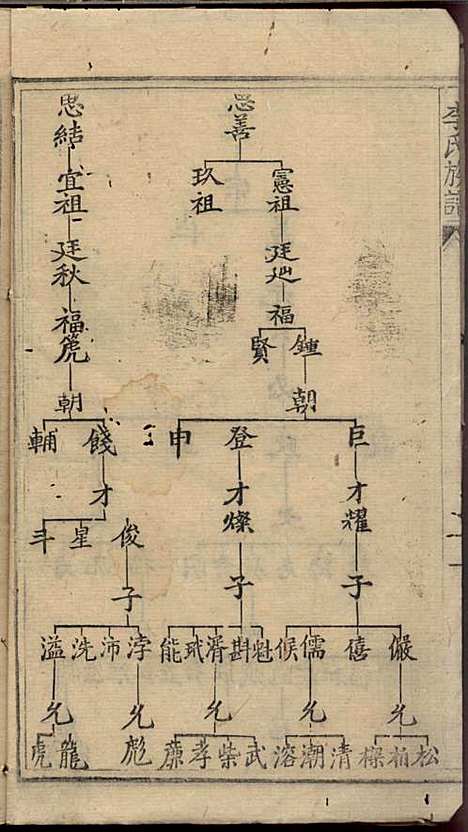 李氏族譜
思善
憲祖
玖祖
廷
福
鍾
賢
朝
巨
登
申
才耀
才燦
子
子
儼
僖
儒
候
魁
斟
湑
珷
能
允
允
允
松
柏
樑
清
潮
溶
武
柴
孝
廉
思結
宜祖
廷秋
福箎
朝
餞
輔
才
俊
星
斗
子
浡
沛
洗
溢
允
允
彪
龍
虎